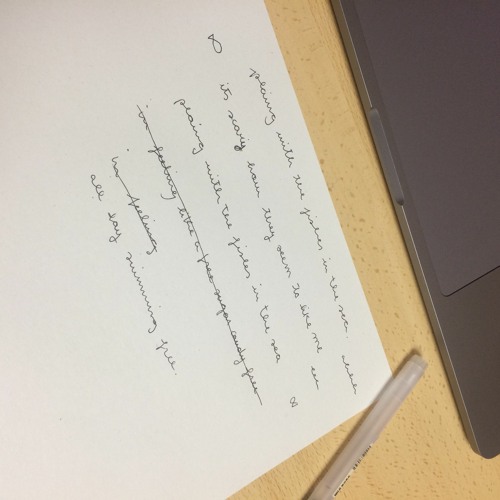 playing with the fishes in the sea.
its scary how they seem to like me
playing with the fishes in the sea
im feeling like a free sugar candy free
im feeling
all day swimming free.